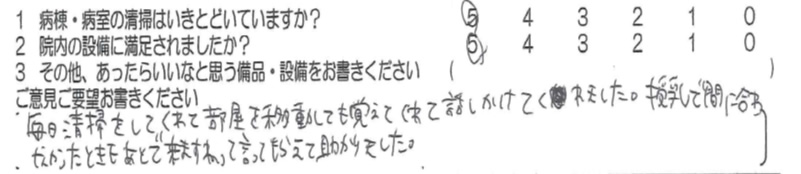 1 病棟・病室の清掃はいきとどいていますか? 5 4 3 2 1 0
2 院内の設備に満足されましたか? 5 4 3 2 1 0
3 その他、あったらいいなと思う備品・設備をお書きください ( )
ご意見ご要望お書きください
毎日清掃をしてくれて部屋を移動しても覚えてくれて話しかけてくれました。授乳で間に合わ
なかったときもあとで来ますねって言ってもらえて助かりました。